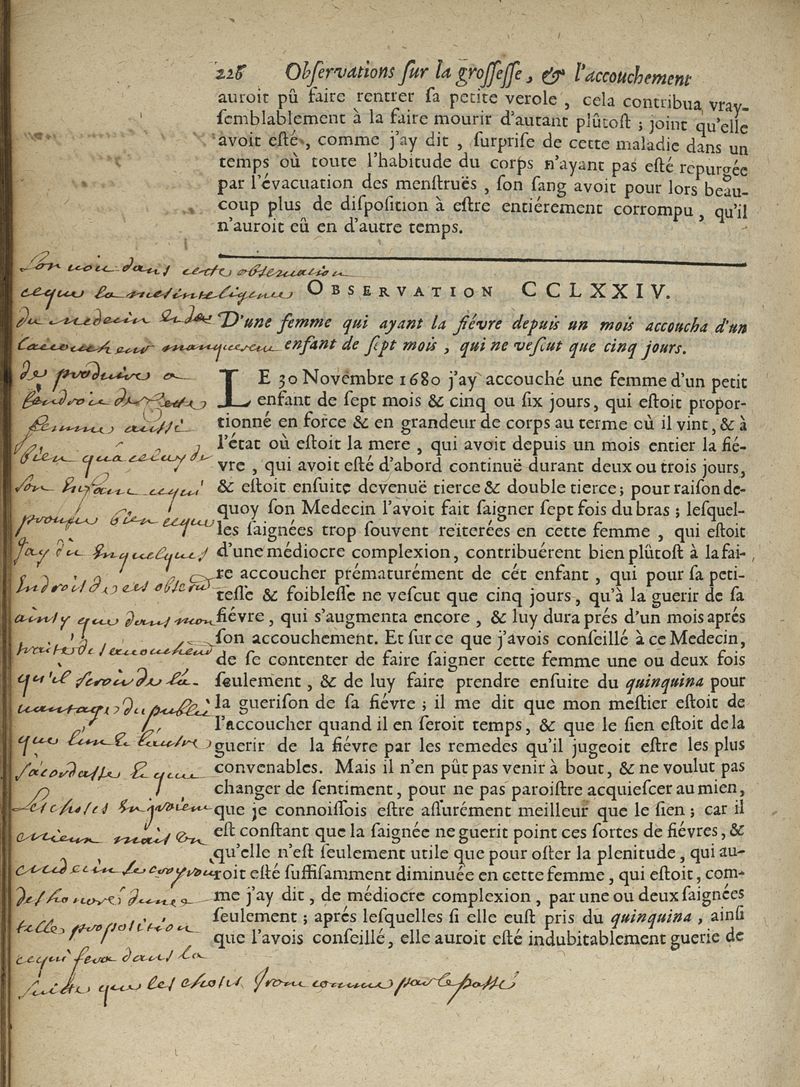 228 Obſervations ſur la groſſeſſe, & l'accouchement
auroit pû faire rentrer ſa petite verole, cela contribua vray-
ſemblablement à la faire mourir d'autant plûtoſt ; joint qu'elle
avoit eſté, comme j'ay dit, ſurpriſe de cette maladie dans un
temps où toute l'habitude du corps n'ayant pas eſté repurgée
par l'évacuation des menſtruës, ſon ſang avoit pour lors beau-
coup plus de diſpoſition à eſtre entiérement corrompu, qu'il
n'auroit eû en d'autre temps.
OBSERVATION CCLXXIV.
D'une femme qui ayant la fiévre depuis un mois accoucha d'un
enfant de ſept mois, qui ne veſcut que cinq jours.
LE 30 Novembre 1680 j'ay accouché une femme d'un petit
enfant de ſept mois & cinq ou ſix jours, qui eſtoit propor-
tionné en force & en grandeur de corps au terme où il vint, & à
l'état où eſtoit la mere, qui avoit depuis un mois entier la fié-
vre, qui avoit eſté d'abord continuë durant deux ou trois jours,
& eſtoit enſuite devenuë tierce & double tierce ; pour raiſon de-
quoy ſon Medecin l'avoit fait ſaigner ſept fois du bras ; leſquel-
les ſaignées trop ſouvent reïterées en cette femme, qui eſtoit
d'une médiocre complexion, contribuérent bien plûtoſt à la fai-
re accoucher prématurément de cét enfant, qui pour ſa peti-
teſſe & foibleſſe ne veſcut que cinq jours, qu'à la guerir de ſa
fiévre, qui s'augmenta encore, & luy dura prés d'un mois aprés
ſon accouchement. Et ſur ce que j'avois conſeillé à ce Medecin,
de ſe contenter de faire ſaigner cette femme une ou deux fois
ſeulement, & de luy faire prendre enſuite du quinquina pour
la gueriſon de ſa fiévre ; il me dit que mon meſtier eſtoit de
l'accoucher quand il en ſeroit temps, & que le ſien eſtoit de la
guerir de la fiévre par les remedes qu'il jugeoit eſtre les plus
convenables. Mais il n'en pût pas venir à bout, & ne voulut pas
changer de ſentiment, pour ne pas paroiſtre acquieſcer au mien,
que je connoiſſois eſtre aſſurément meilleur que le ſien ; car il
eſt conſtant que la ſaignée ne guerit point ces ſortes de fiévres, &
qu'elle n'eſt ſeulement utile que pour oſter la plenitude, qui au-
roit eſté ſuffiſamment diminuée en cette femme, qui eſtoit, com-
me j'ay dit, de médiocre complexion, par une ou deux ſaignées
ſeulement ; aprés leſquelles ſi elle euſt pris du quinquina, ainſi
que l'avois conſeillé, elle auroit eſté indubitablement guerie de
lon voit dans cette obseruation
ceque la mesintelligence
du medecin & de
de produire a
lendroit de cette
femme aussi
bien qua celuy de
son Enfant cequi
prouue bien ceque
Jay dit En quelques
Endroit de ces obseru
ainsy que dans mon
qu'il seroit de la
uantage du public
que lun & lautre
sacordasse & que
les choses En
mieux mais En
medecin se croyroit
deshonoré dune
telle proposition
cequi fera dans la
suitte que les choses Iront comme par le passé